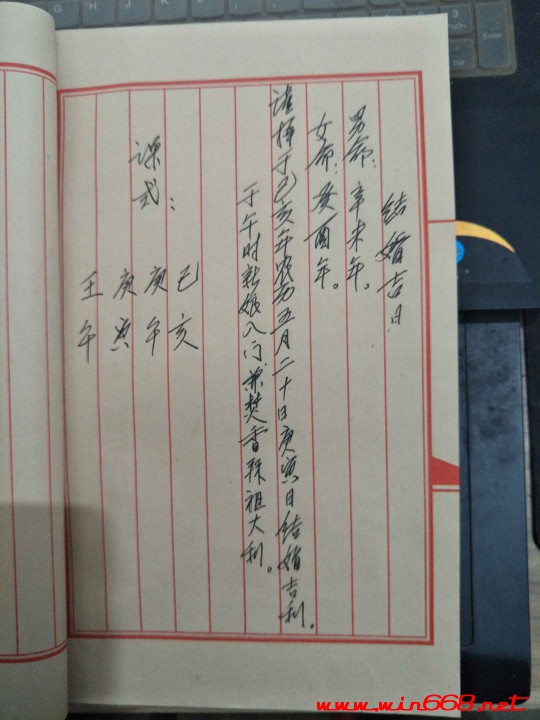 结婚吉日
男命：辛未年。
女命：癸酉年。
谨择于己亥年农历五月二十日庚寅日结婚吉利。
于午时新娘入门并焚香拜祖大利。
课式：
己亥
庚午
庚寅
壬午
www.win668.net